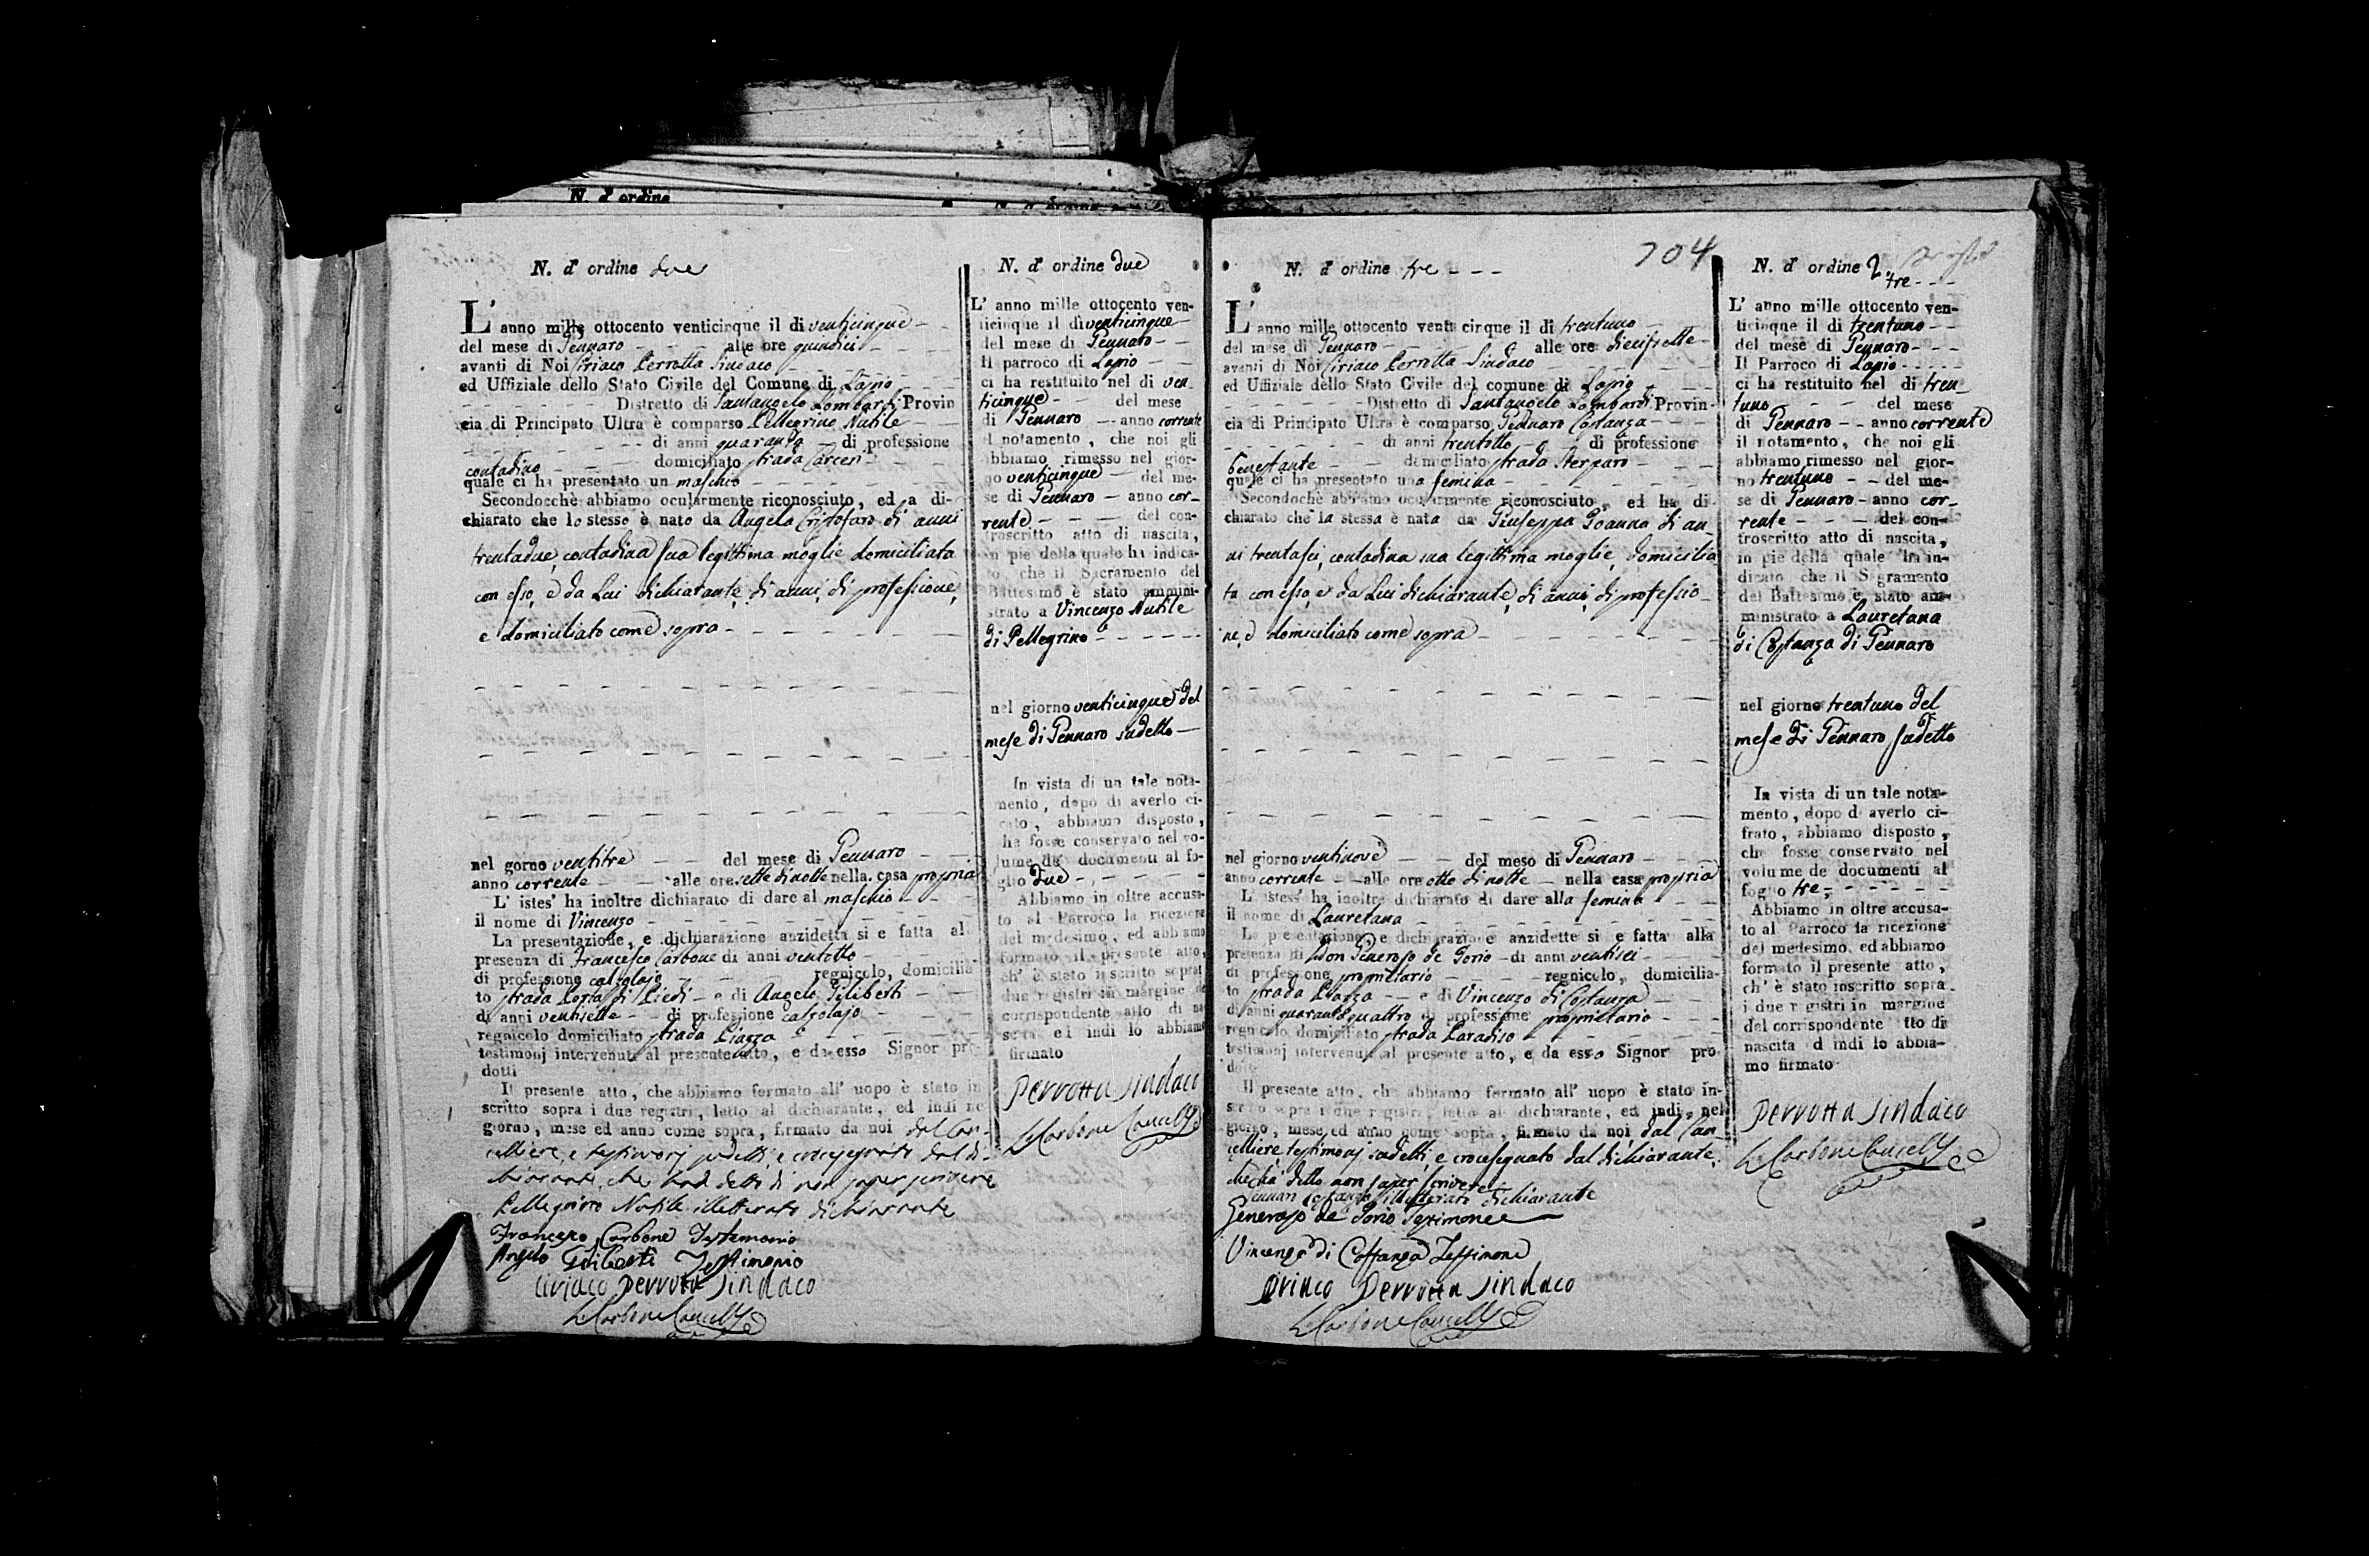 N. d' ordine
N. d' ordine due
L' anno mille ottocento venticinque il di venticinque
del mese di Gennaro alle ore quindici
avanti di Noi Ciriaco Perrotta Sindaco
ed Uffiziale dello Stato Civile del Comune di Lapio
Distretto di Santangelo Lombardi Provin
cia di Principato Ultra è comparso Pellegrino Nutile
di anni quaranta di professione
contadino domiciliato strada Carceri
quale ci ha presentato un maschio
Secondocchè abbiamo ocularmente riconosciuto, ed a di-
chiarato che lo stesso è nato da Angela Cristofaro di anni
trentadue, contadina sua legittima moglie domiciliata
con esso, e da Lui dichiarante, di anni, di professione,
e domiciliato come sopra
nel gorno ventitre del mese di Gennaro
anno corrente alle ore sette di notte nella casa propria
L' istes' ha inoltre dichiarato di dare al maschio
il nome di Vincenzo
La presentazione, e dichiarazione anzidetta si e fatta al
presenza di Francesco Carbone di anni ventotto
di professione calzolajo regnicolo, domicilia
to strada e di Angelo Giliberti
di anni ventisette di professione calzolajo
regnicolo domiciliato strada Piazza
testimonj intervenuti al presente atto, e da esso Signor pro
dotti
Il presente atto, che abbiamo formato all' uopo è stato in
scritto sopra i due registri, letto al dichiarante, ed indi ne
giorno, mese ed anno come sopra, firmato da noi dal Can-
celliere, e testimonj sudetti, e crocesegnato dal di-
chiarante, che ha detto di non saper scrivere
Pellegrino Nutile illetterato dichiarante
Francesco Carbone Testemonio
Angelo Giliberti Testimonio
Ciriaco Perrotta Sindaco
Carbone Cancell
N. d' ordine due
L' anno mille ottocento ven-
ticinque il di venticinque
del mese di Gennaro
Il parroco di Lapio
ci ha restituito nel di ven
ticinque del mese
di Gennaro anno corrente
il notamento, che noi gli
abbiamo rimesso nel gior-
no venticinque del me-
se di Gennaro anno cor-
rente del con-
troscritto atto di nascita,
in pie della quale ha indica-
to, che il Sacramento del
Battesimo è stato ammini-
strato a Vincenzo Nutile
di Pellegrino
nel giorno venticinque del
mese di Gennaro sudetto
In vista di un tale nota-
mento, dopo di averlo ci-
frato, abbiamo disposto,
ha fosse conservato nel vo-
lume de documenti al fo-
glio due
Abbiamo in oltre accusa-
to al Parroco la ricezione
del medesimo, ed abbiamo
formato il presente atto,
ch' è stato inscritto sopra i
due registri in margine de
corrispondente atto di na
scita, ed indi lo abbiamo
firmato
Perrotta Sindaco
Carbone Cancell
704
N. d' ordine tre
L' anno mille ottocento venti cinque il di trentuno
del mese di Gennaro alle ore diecisette
avanti di Noi Ciriaco Perrotta Sindaco
ed Uffiziale dello Stato Civile del comune di Lapio
Distretto di Santangelo Lombardi Provin-
cia di Principato Ultra è comparso Gennaro Costanza
di anni trentotto di professione
benestante domiciliato strada Sterparo
quale ci ha presentato una femina
Secondochè abbiamo ocularmente riconosciuto, ed ha di
chiarato che la stessa è nata da Giuseppa Joanna di an
ni trentasei, contadina sua legittima moglie, domicilia
ta con esso, e da Lui dichiarante, di anni, di professio-
ne, e domiciliato come sopra
nel giorno ventinove del meso di Gennaro
anno corrente alle ore otto di notte nella casa propria
L' istess' ha inoltre dichiarato di dare alla femina
il nome di Lauretana
La presentazione, e dichiarazione anzidette si e fatta alla
presenza di Don Generoso de Jorio di anni ventisei
di professione proprietario regnicolo, domicilia-
to strada Piazza e di Vincenzo di Costanza
di anni quarantaquattro di professione proprietario
regnicolo domiciliato strada Paradiso
testimonj intervenuti al presente atto, e da esso Signor pro
dotti
Il presente atto, che abbiamo formato all' uopo è stato in-
scritto sopra i due registri, letto al dichiarante, ed indi, nel
giorno, mese, ed anno come sopra, firmato da noi, dal Can-
celliere, testimonj sudetti, e crocesegnato dal dichiarante,
che ha detto non saper scrivere
Gennaro Costanza illetterato dichiarante
Generoso de Jorio Testimone
Vincenzo di Costanza Testimone
Ciriaco Perrotta Sindaco
Carbone Cancell
N. d' ordine 2.
tre
L' anno mille ottocento ven-
ticinque il di trentuno
del mese di Gennaro
Il Parroco di Lapio
ci ha restituito nel di tren
tuno del mese
di Gennaro anno corrente
il notamento, che noi gli
abbiamo rimesso nel gior-
no trentuno del me-
se di Gennaro anno cor-
rente del con-
troscritto atto di nascita,
in pie della quale ha in-
dicato che il Sagramento
del Battesimo è stato am-
ministrato a Lauretana
di Costanza di Gennaro
nel giorno trentuno del
mese di Gennaro sudetto
In vista di un tale nota-
mento, dopo d averlo ci-
frato, abbiamo disposto,
che fosse conservato nel
volume de documenti al
foglio tre
Abbiamo in oltre accusa-
to al Parroco la ricezione
del medesimo, ed abbiamo
formato il presente atto,
ch' è stato inscritto sopra
i due registri in margine
del corrispondente atto di
nascita d indi lo abbia-
mo firmato
Perrotta Sindaco
Carbone Cancell